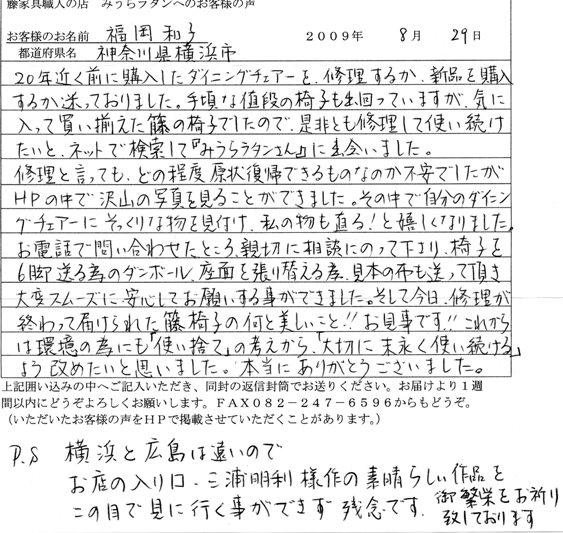 藤家具職人の店 みうらラタンへのお客様の声
お客様のお名前 福岡和子 2009年 8月 29日
都道府県名 神奈川県横浜市
20年近く前に購入したダイニングチェアーを、修理するか、新品を購入
するか迷っておりました。手頃な値段の椅子も出回っていますが、気に
入って買い揃えた籐の椅子でしたので、是非とも修理して使い続け
たいと、ネットで検索して『みうらラタンさん』に出会いました。
修理と言っても、どの程度原状復帰できるものなのか不安でしたが
HPの中で沢山の写真を見ることができました。その中で自分のダイニン
グチェアーにそっくりな物を見付け、私の物も直る!と嬉しくなりました。
お電話で問い合わせたところ、親切に相談にのって下さり、椅子を
6脚送る為のダンボール、座面を張り替える為、見本の布も送って頂き
大変スムーズに安心してお願いする事ができました。そして今日、修理が
終わって届けられた籐椅子の何と美しいこと!!お見事です!!これから
は環境の為にも「使い捨て」の考えから、「大切に末永く使い続ける」
よう改めたいと思いました。本当にありがとうございました。
上記囲い込みの中へご記入いただき、同封の返信封筒でお送りください。お届けより1週
間以内にどうぞよろしくお願いします。FAX082-247-6596からもどうぞ。
(いただいたお客様の声をHPで掲載させていただくことがあります。)
P.S 横浜と広島は遠いので
お店の入り口・三浦明利様作の素晴らしい作品を
この目で見に行く事ができず残念です。御繁栄をお祈り
致しております